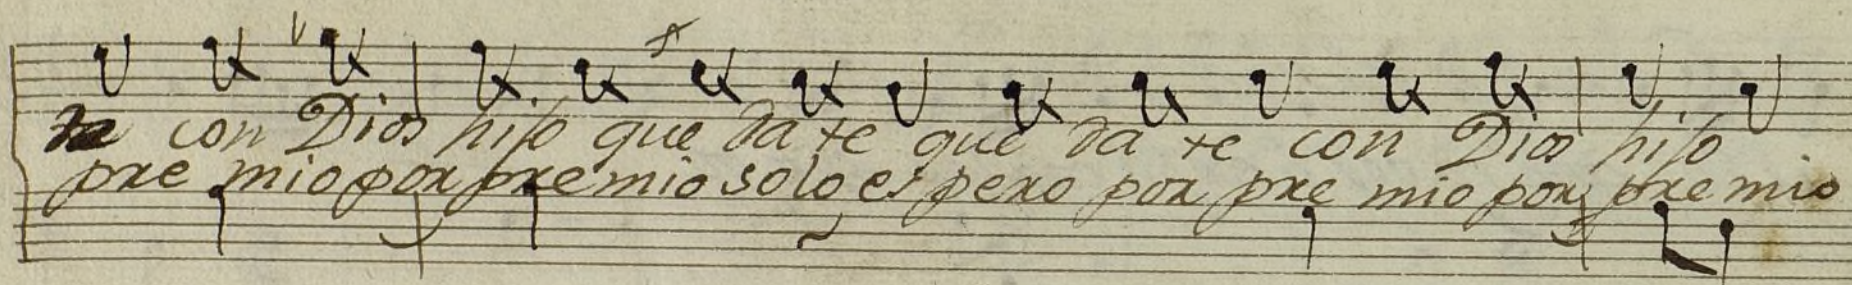 con Dios hijo que da te que da te con Dios hijo
pre mio por premio solo espero por pre mio por premio